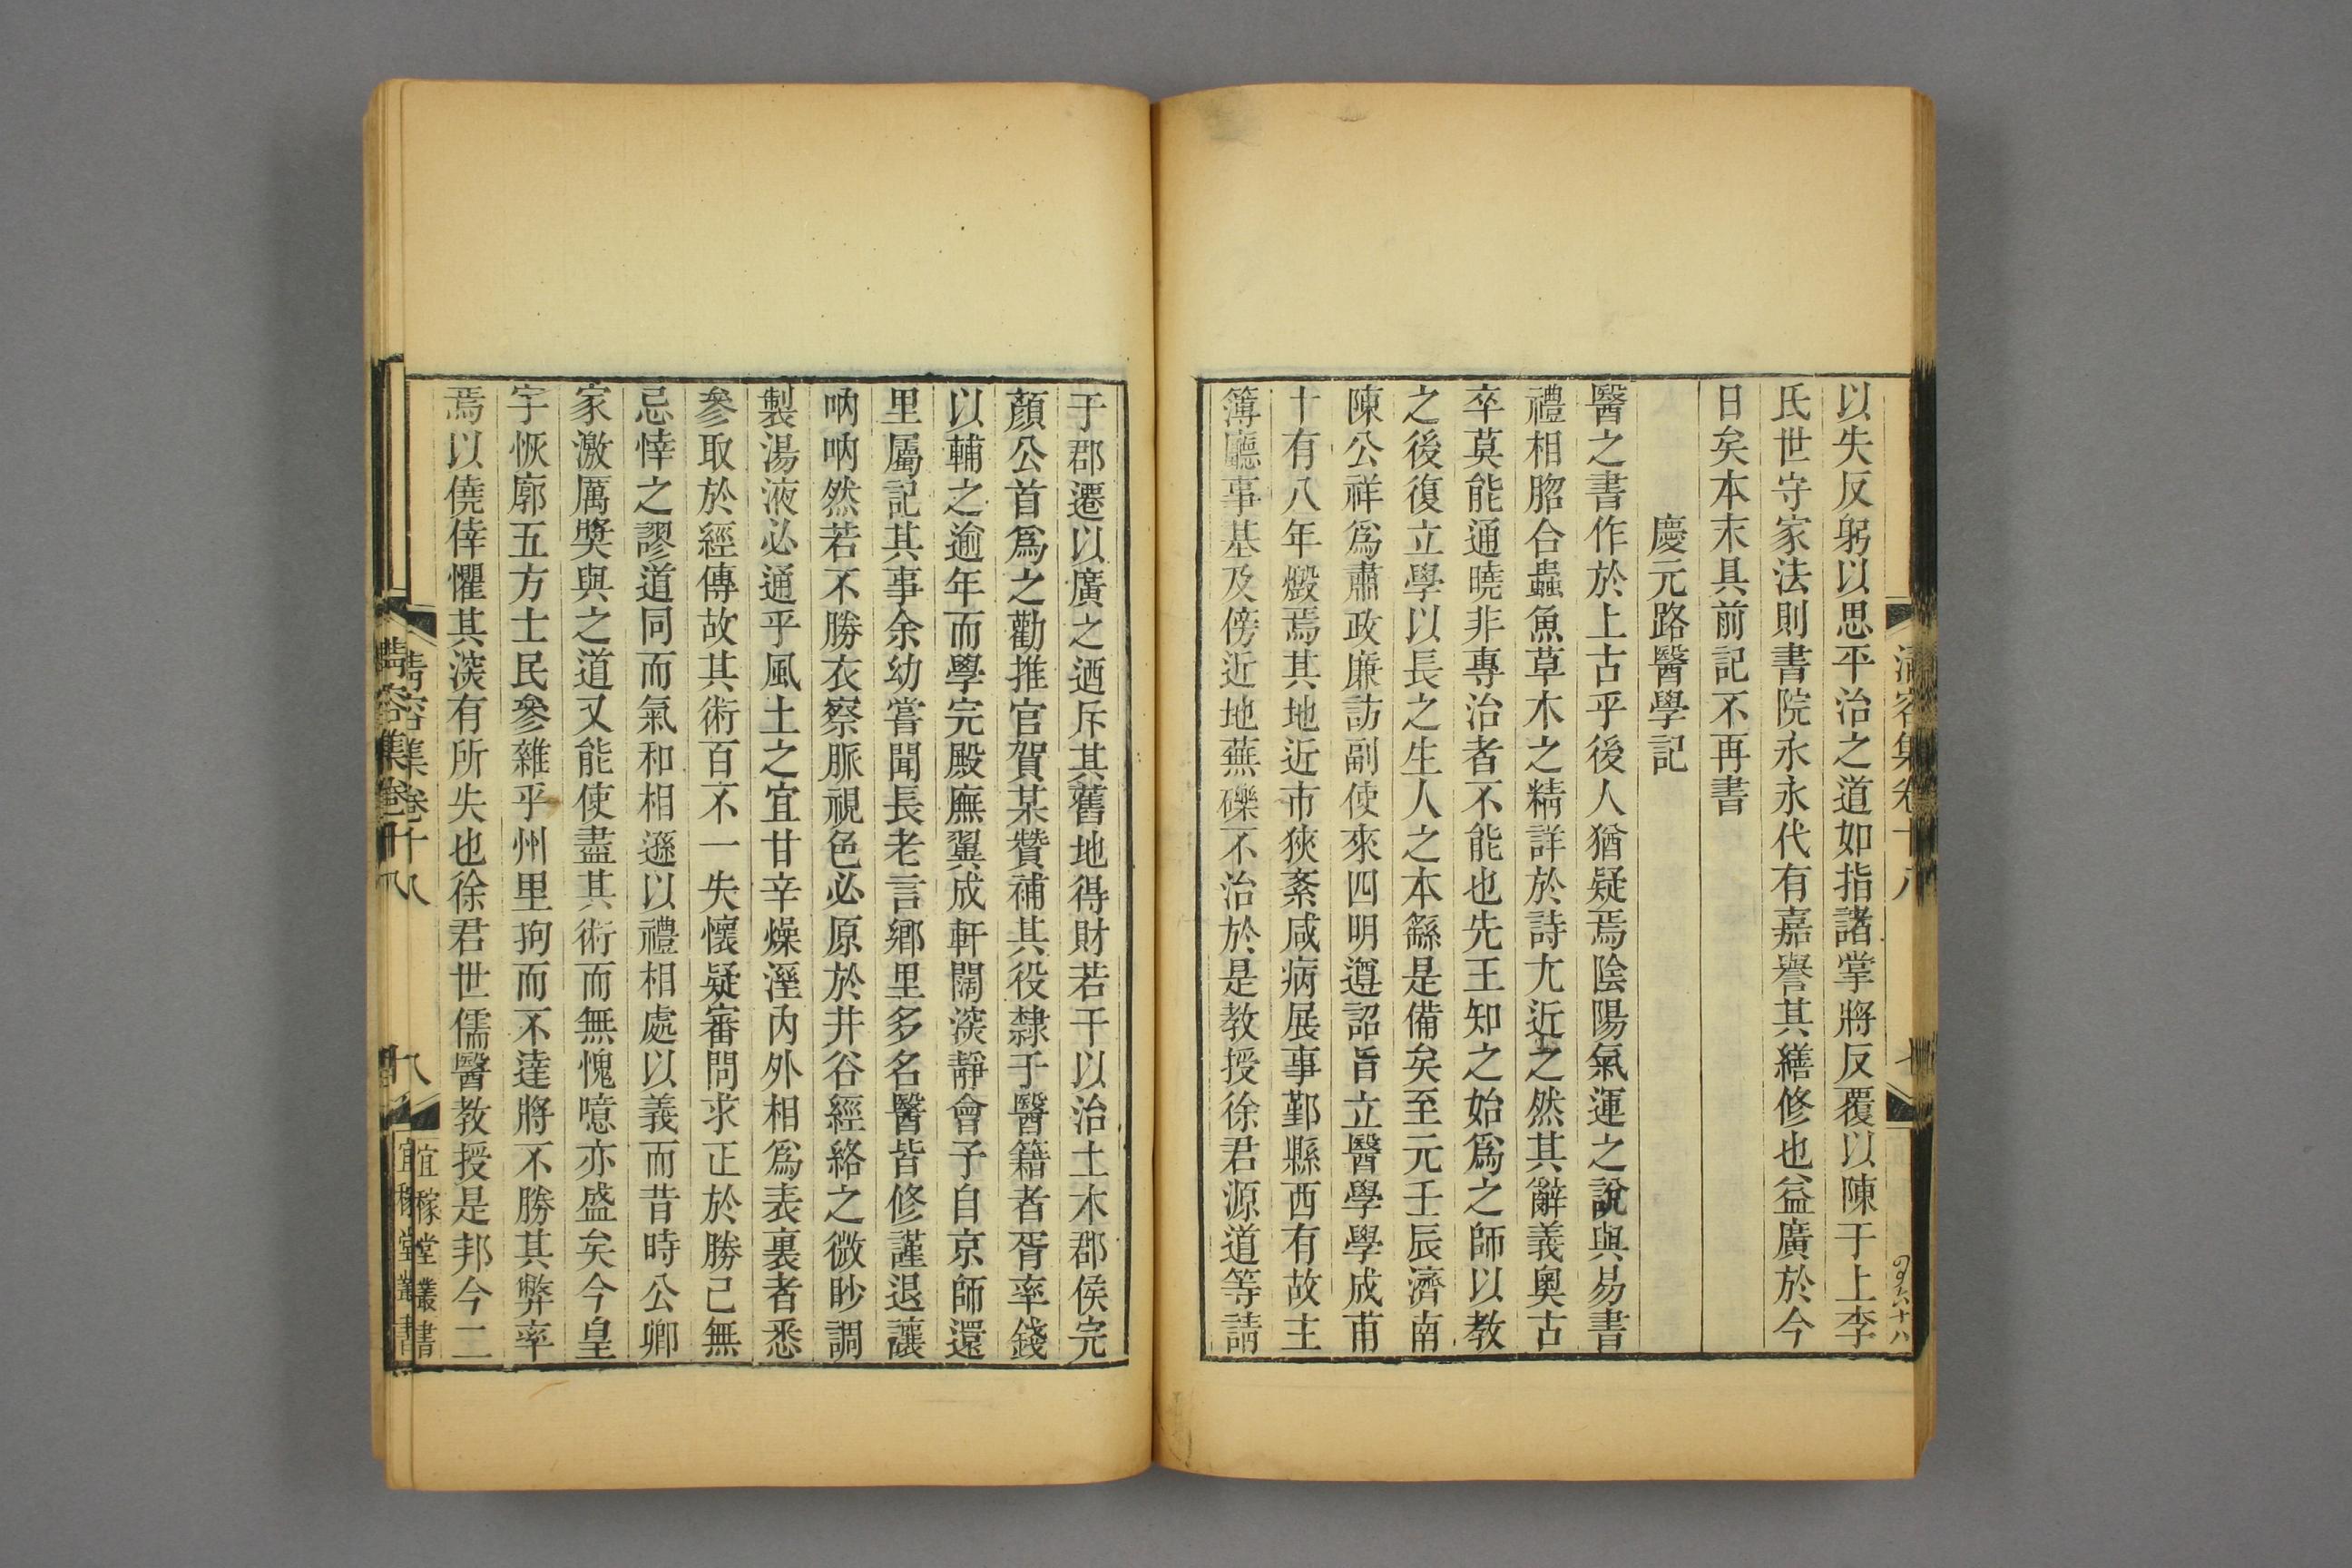 以失反躬以思平治之道如指諸掌將反覆以陳于上李
氏世守家法則書院永永代有嘉譽其繕修也益廣於今
日矣本末具前記不再書
慶元路醫學記
醫之書作於上古乎後人猶疑焉陰陽氣運之說與易書
禮相脗合蟲魚草木之精詳於詩尤近之然其辭義奧古
卒莫能通曉非專治者不能也先王知之始爲之師以教
之後復立學以長之生人之本繇是備矣至元壬辰濟南
陳公祥爲肅政廉訪副使來四明遵詔旨立醫學學成甫
十有八年燬焉其地近市狹紊咸病展事鄞縣西有故主
簿廳事基及傍近地蕪礫不治於是教授徐君源道等請
于郡遷以廣之迺斥其舊地得財若干以治土木郡侯完
顏公首爲之勸推官賀某贊補其役隸子醫籍者胥率錢
以輔之逾年而學完殿廡翼成軒闊深靜會予自京師還
里屬記其事余幼嘗聞長老言鄉里多名醫皆修謹退讓
吶吶然若不勝衣察脈視色必原於井谷經絡之微眇調
製湯液必通乎風土之宜甘辛燥溼內外相爲表裏者悉
參取於經傳故其術百不一失懷疑審問求正於勝己無
忌悻之謬道同而氣和相遜以禮相處以義而昔時公卿
家激厲獎與之道又能使盡其術而無愧噫亦盛矣今皇
宇恢廓五方士民參雜乎州里拘而不達將不勝其弊率
焉以僥倖懼其深有所失也徐君世儒醫教授是邦今二
清容集卷十八
八
宜稼堂叢書